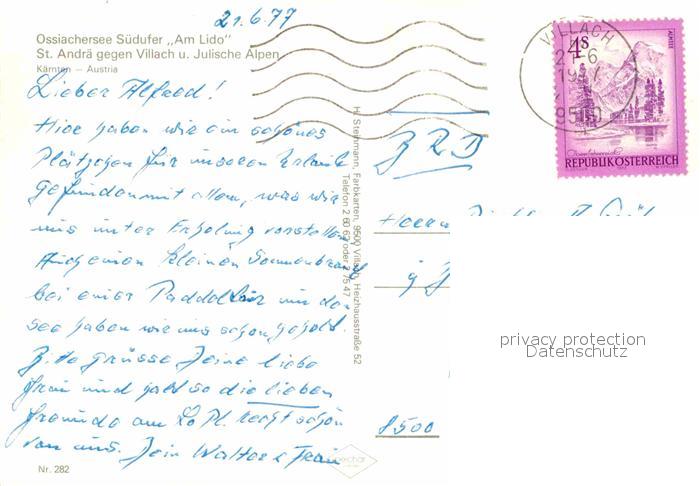 21.6.77
Ossiachersee Südufer „Am Lido"
St. Andrä gegen Villach u. Julische Alpen
Kärnten – Austria
Lieber Alfred!
Hier haben wir ein schönes
Plätzchen für unseren Urlaub
gefunden mit allem, was wir
uns unter Erholung vorstellen.
Auch einen kleinen Sonnenbrand
bei einer Paddeltour um den
See haben wir uns schon geholt.
Bitte grüsse Deine liebe
Frau und
die lieben
Freunde am Lo Pl. recht schön
von uns. Dein Walter u. Frau
Nr. 282
H. Steinmann, Farbkarten, 9500 Villach, Heizhausstraße 52
Telefon 2 60 62 oder 2 75 47
VILLACH
21 6
9500
4S
ALMSEE
REPUBLIK ÖSTERREICH
BRD
Herrn
8500
privacy protection
Datenschutz